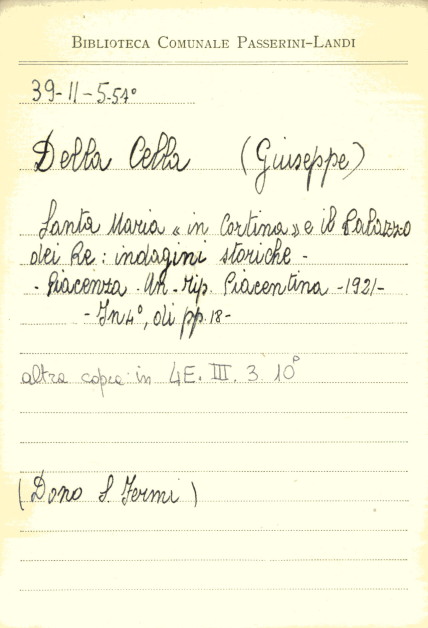 BIBLIOTECA COMUNALE PASSERINI-LANDI
39-11-5-54°
Della Cella (Giuseppe)
Santa Maria « in Cortina » e il Palazzo
dei Re: indagini storiche -
- Piacenza - Un - tip. Piacentina - 1921 -
- In 4°, di pp. 18 -
altra copia in 4E. III. 3 10°
(Dono S. Fermi)